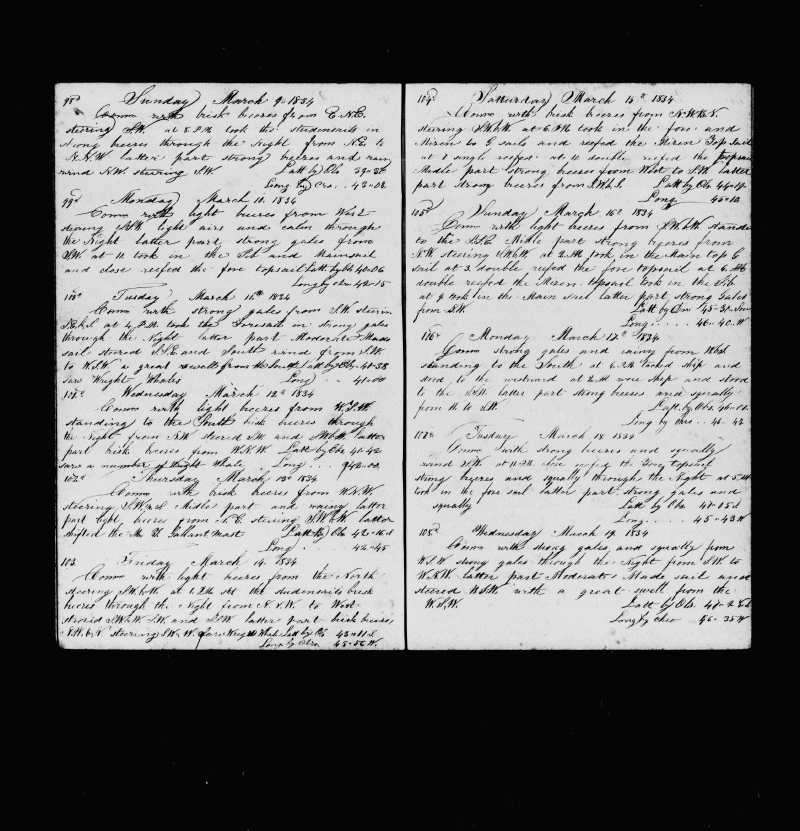 98d Sunday March 9 1834
Comm with brisk beeres from E.N.E.
steering S.W. at 8 P.M. took the studensails in
strong beeres through the Night from N.E. to
N.N.W latter part strong beeres and rainy
wind N.W. steering S.W. Latt by Obs 39-30
Long by Cro.. 43-02
99d Monday March 10. 1834
Comm with light beeres from West
steering light airs and calm through
the Night latter part strong gales from
S.W. at 11. took in the Jib and Mainsail
and close reefed the fore topsail Latt by Obs 40-06
Long by chro 42-15
100d Tusday March 11th 1834
Comm with strong gales from S.W. steerin
S.E.b.S at 4 P.M. took the Foresail in strong gales
through the Night latter part Moderate Made
sail steered S.S.E and South wind from S.W.
to W.S.W a great swell from the South Latt by Obs 40-58
saw Wright Whales Long 41-00
101d Wednesday March 12th 1834
Comm with light beeres from W.S.W
standing to the South brisk beeres through
the Night from N.W. steered S.W and latter
part brisk beeres from W.N.W Latt by Obs 41-42
saw a number of Wright Whale. Long 42-02
102d Thursday March 13th 1834
Comm with brisk beeres from W.N.W.
steering S.W. Midle part and rainy latter
part light beeres from N.E. steering S.W.b.W. latter
shifted the Gallant mast Latt By Obs 42-
Long 42-45
103. Friday March 14. 1834
Comm with light beeres from the North
steering S.W.b.W. at 6. P.M. the studensails brisk
beeres through the Night from N.N.W to West
steered S.W.b.W S.W. and S.S.W latter part brisk beeres
N.W.b.N steering S.W.b.W. saw Wright Whale Latt by Ob 43-11 S
Long by Chro 45-06 W.
104d Satturday March 15th 1834
Comm with brisk beeres from N.W.b.N.
steering S.W.b.W. at 6. P.M took in the fore and
Mizen to G sails and reefed the Mizen Top sail
at 8 single reefed at 10 double reefed the topsail
Midle part strong beeres from West to S.W. latter
part strong beeres from S.W.b.S. Latt by Obs 44-19
Long 45-13
105d Sunday March 16th 1834
Comm with light beeres from S.W.b.W standi
to the S.S.E Midle part strong beeres from
N.W steering S.W.b.W at 2. AM took in the Main top G
sail at 3. double reefed the fore topsail at 6. AM
double reefed the Mizen topsail took in the Jib
at 9 took in the Main sail latter part strong Gales
from S.W. Latt by Obs 45-31
Long 46-40. W
106d Monday March 17th 1834
Comm strong gales and rainy from West
standing to the South at 6. P.M tacked ship and
stood to the westward at 2. AM wore ship and stood
to the latter part strong beeres and squally
from W to S.W. Latt. by Obs. 46-01
Long by chro.. 46-42
107d Tusday March 18 1834
Comm with strong beeres and squally
wind at 11. P.M. close reefed the Fore topsail
strong beeres and squally through the Night at 5. AM
took in the fore sail latter part strong gales and
squally Latt by Obs 47-05 S
Long 45-43 W
108d Wednesday March 19. 1834
Comm with strong gales, and squally from
W.S.W strong gales through the Night from S.W to
W.N.W. latter part Moderate Made sail and
steered W.S.W. with a great swell from the
W.S.W. Latt by Obs. 47-2
Long by chro 46-35 W